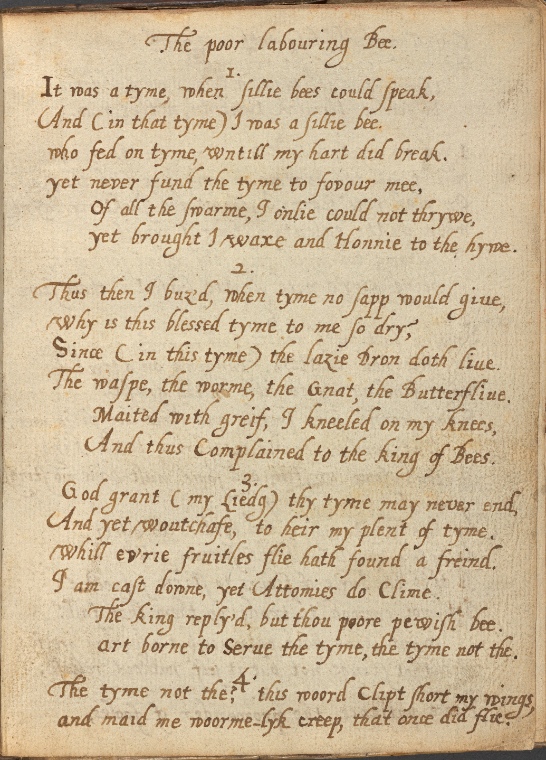 The poor labouring Bee.
1.
It was a tyme, when sillie bees could speak,
(And (in that tyme) I was a sillie bee.
who fed on tyme, wntill my hart did break.
yet never fund the tyme to fovour mee,
Of all the swarme, I onlie could not thrywe,
yet brought I waxe and Honnie to the hywe.
2.
Thus then I buz'd, when tyme no sapp would giue,
Why is this blessed tyme to me so dry?
Since (in this tyme) the lazie Dron doth liue.
The waspe, the worme, the Gnat, the Butterfliue.
Maited with greif, I kneeled on my knees,
And thus Complained to the king of Bees.
3.
God grant (my Liedg) thy tyme may never end,
And yet woutchafe, to heir my plent of tyme.
Whill evrie fruitles flie hath found a freind.
I am cast downe, yet Attomies do Clime.
The king reply'd, but thou poore pewish bee.
art borne to Serue the tyme, the tyme not the.
4.
The tyme not the? this woord Clipt short my wings,
and maid me woorme-lyk creep, that once did flie.